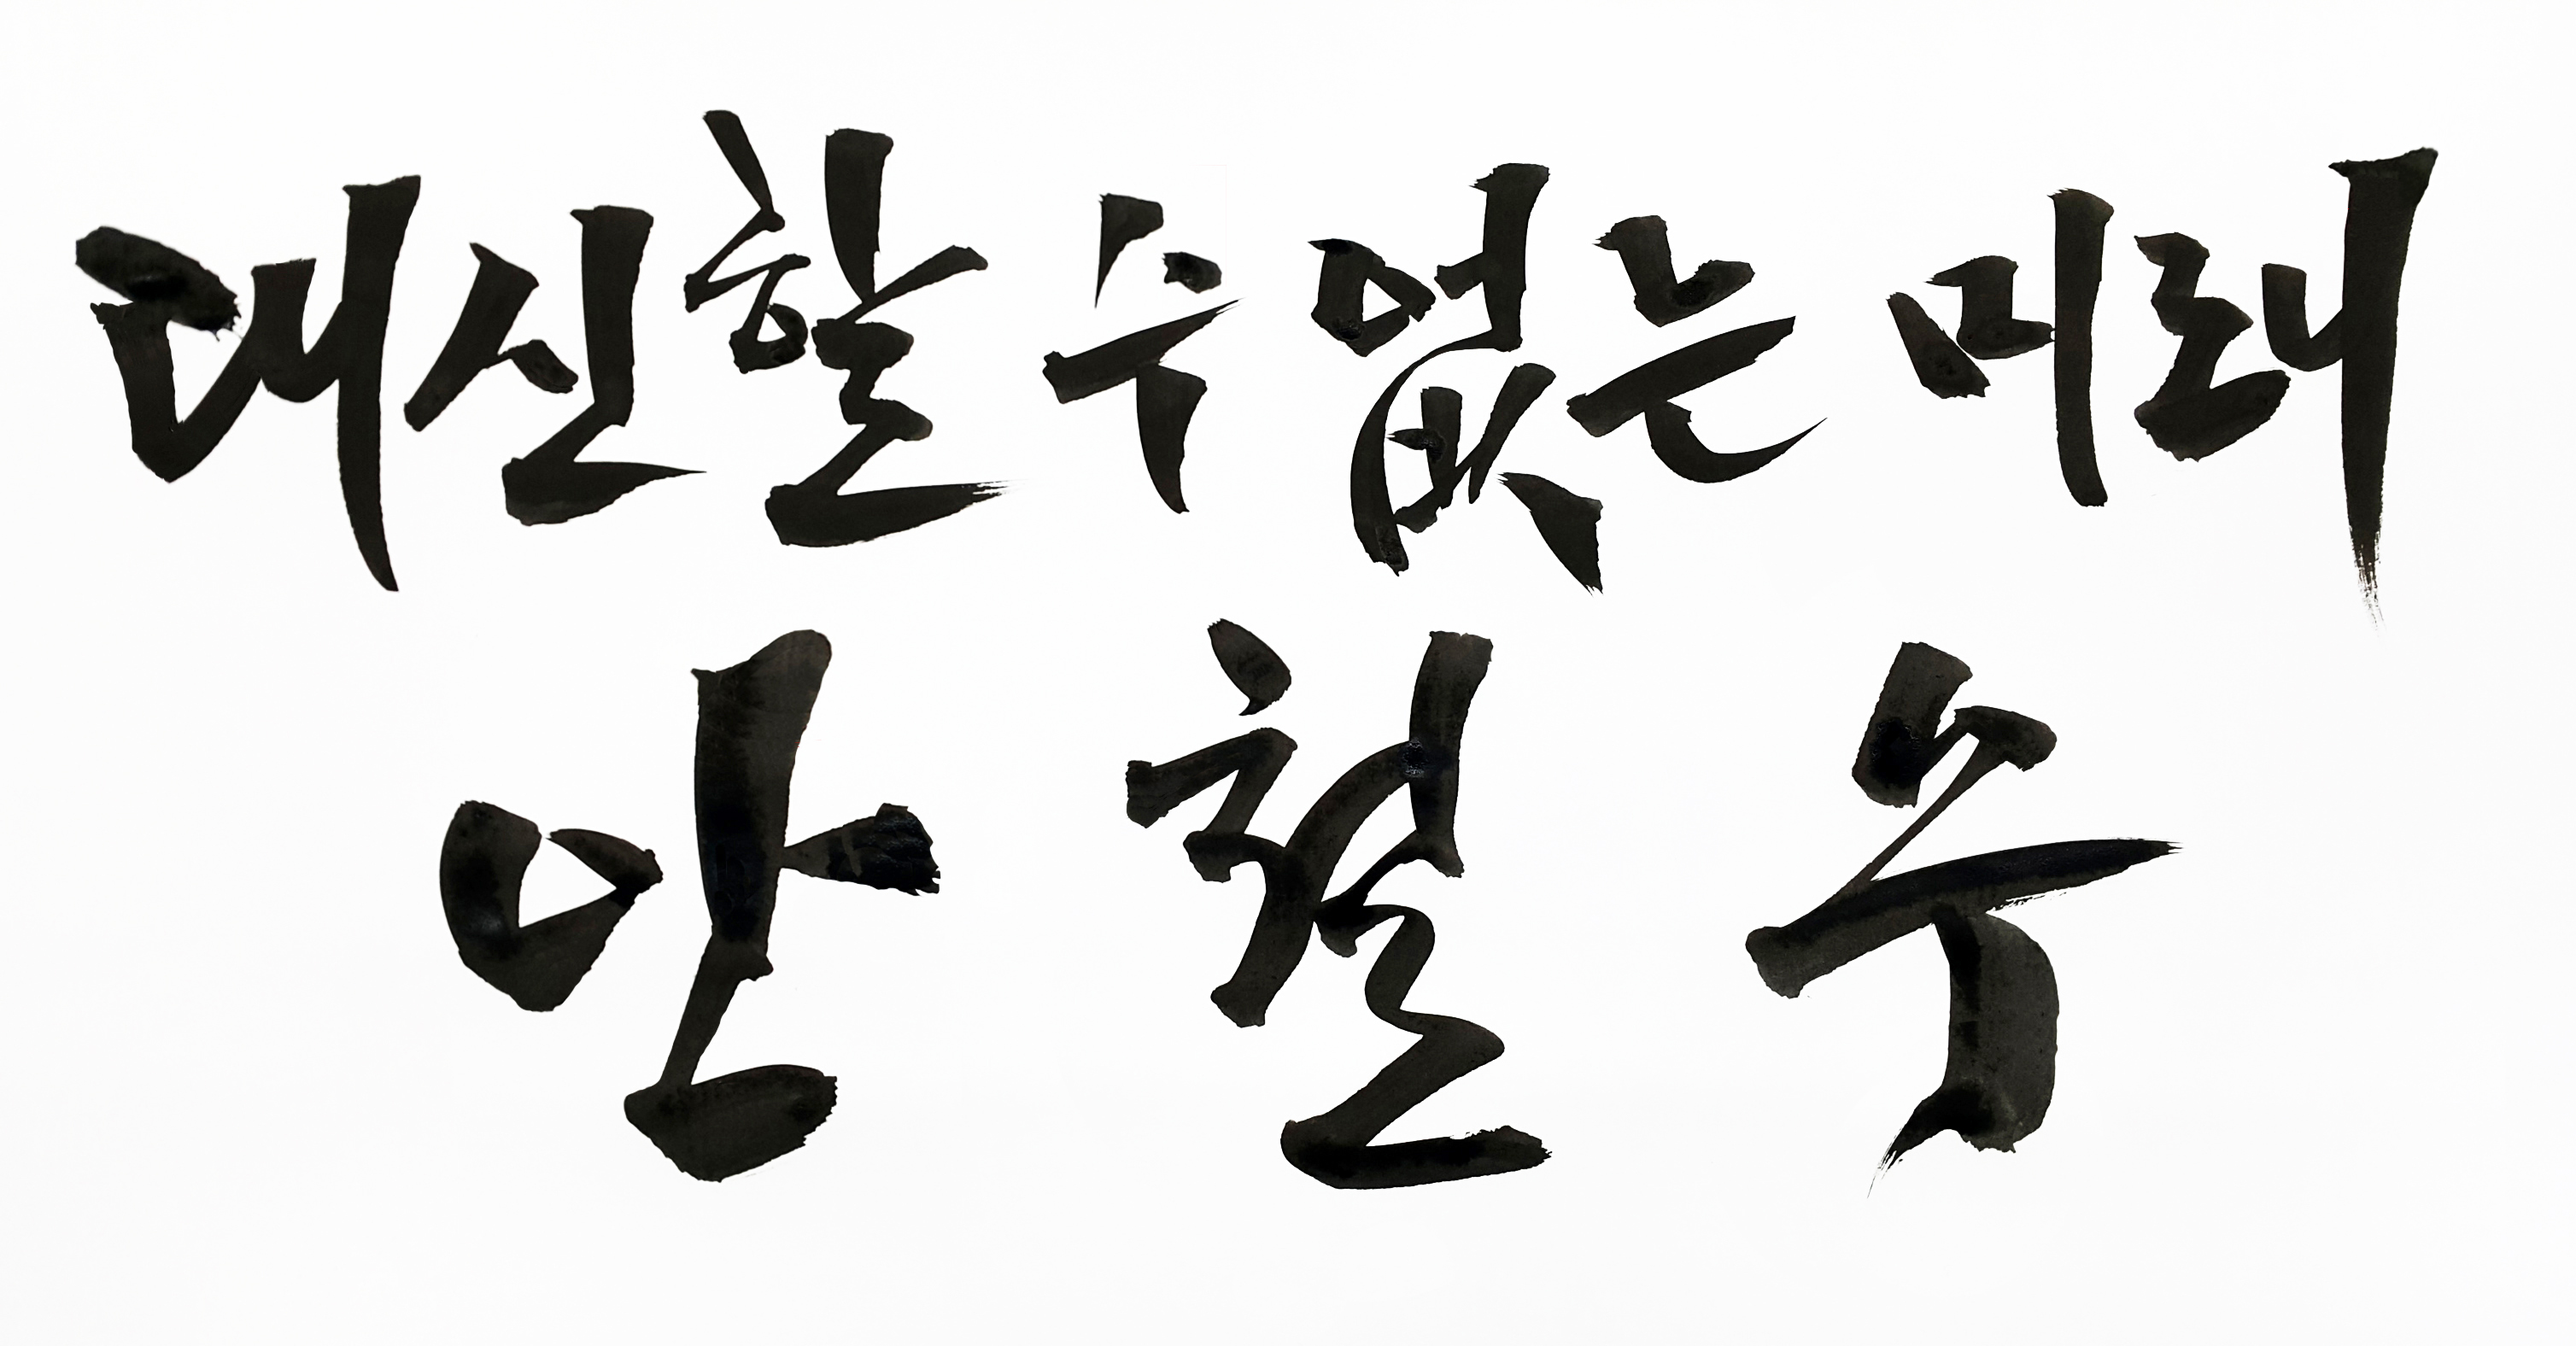 대신할 수 없는 미래
안철수